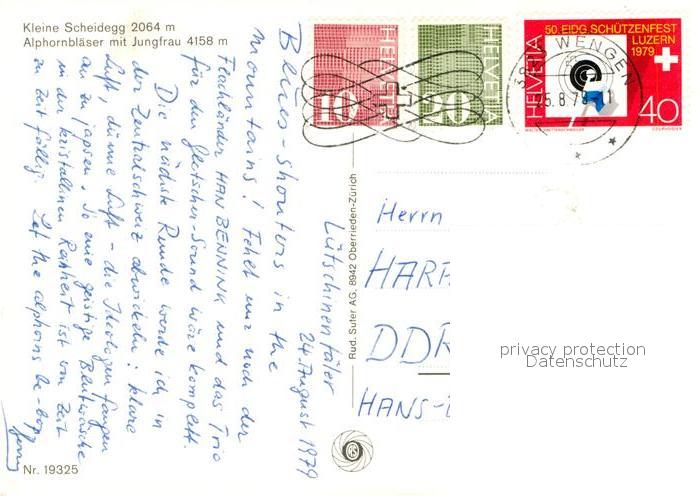 Kleine Scheidegg 2064 m
Alphornbläser mit Jungfrau 4158 m
Lütschinentäler
24. August 1979
Blues-Shouters in the
mountains! Fehlt nur noch der
Flachländer HAN BENNINK und das Trio
für den Gletscher-Sound wäre komplett.
Die nächste Runde werde ich in
der Zentralschweiz abwickeln: klare
Luft, dünne Luft - die Ideologen fangen
an zu japsen. So eine geistige Blutwäsche
in der kristallinen Reinheit ist von Zeit
zu Zeit fällig. Let the alphorns be-bop
Nr. 19325
Rud. Suter AG, 8942 Oberrieden-Zürich
HELVETIA
10
HELVETIA
20
50. EIDG SCHÜTZENFEST
LUZERN
1979
HELVETIA
40
WENGEN
25.8.79
Herrn
HARA
DDR
HANS-
privacy protection
Datenschutz